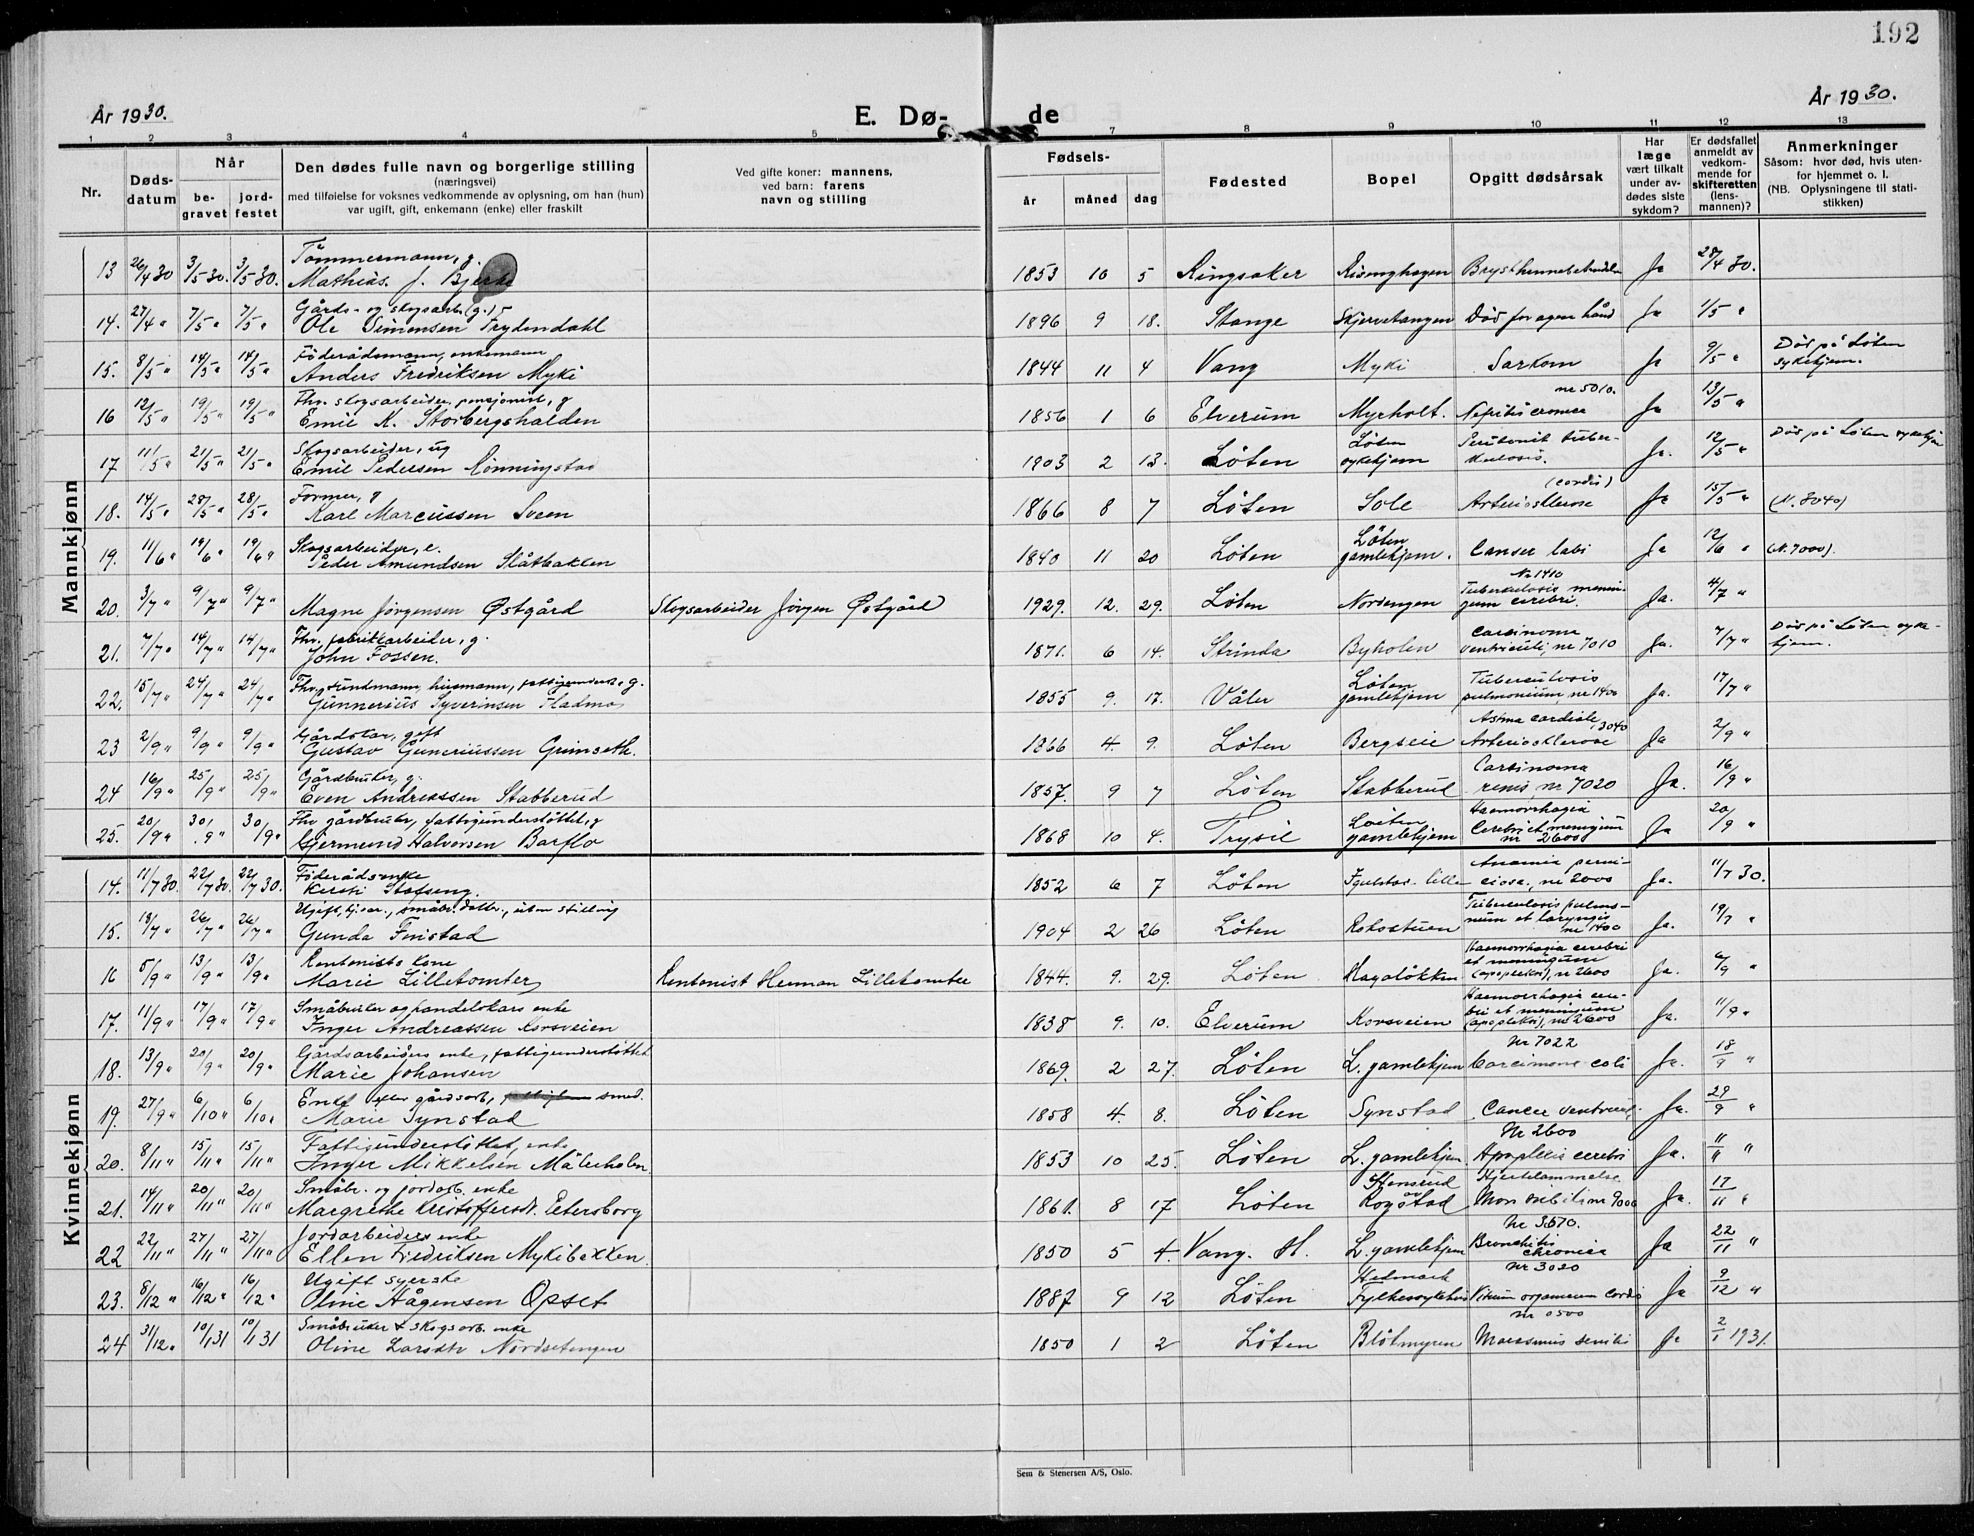 192
År 1930.
E. Dø-
de
År 1930.
1 2 3 4 5 7 8 9 10 11 12 13
Nr.
Døds-
datum
Når
be-
gravet
jord-
festet
Den dødes fulle navn og borgerlige stilling
(næringsvei)
med tilføielse for voksnes vedkommende av oplysning, om han (hun)
var ugift, gift, enkemann (enke) eller fraskilt
Ved gifte koner: mannens,
ved barn: farens
navn og stilling
Fødsels-
år
måned
dag
Fødested
Bopel
Opgitt dødsårsak
Har
læge
vært tilkalt
under av-
dødes siste
sykdom?
Er dødsfallet
anmeldt av
vedkom-
mende for
skifteretten
(lens-
mannen)?
Anmerkninger
Såsom: hvor død, hvis uten-
for hjemmet o. l.
(NB. Oplysningene til stati-
stikken)
Mannkjønn
Tömmermann, g.
13 26/4 30 3/5 30. 3/5 30. Mathias. J. Bjerke 1853 10 5 Ringsaker Risenghagen Ja 28/4 30.
Gårds- og skogsarb. (g.)
14. 27/4 " 7/5 " 7/5 " Ole Simensen Frydendahl 1896 9 18. Stange Skjervetangen Död for egen hånd Ja 1/5 "
Föderådsmann, enkemann
15. 8/5 " 14/5 " 14/5 " Anders Fredriksen Myki 1844 11 4 Vang Myki Sarkom Ja 9/5 " Död på Löten
sykehjem.
Fhv. skogsarbeider, pensjonist, g nr 5010.
16 12/5 " 19/5 " 19/5 " Emil K. Storbergshalden 1856 1 6 Elverum Myrholt. Ja 13/5 "
Skogsarbeider, ug Löten Peritonit tuber-
17 11/5 " 21/5 " 21/5 " Emil Pedersen Rönningstad 1903 2 13. Löten sykehjem kulosis. Ja. 12/5 " Död på Löten sykehjem
Former, g (cordis)
18. 14/5 " 28/5 " 28/5 " Karl Marcussen Sveen 1866 8 7 Löten Sole Arteriosklerose Ja 15/5 " (N. 3040)
Skogsarbeider, e. Löten
19. 11/6 " 19/6 " 19/6 " Peder Amundsen Slåtbakken 1840 11 20 Löten gamlehjem. Canser labi Ja 12/6 " (N. 7000).
No 1410
Tuberkulosis menin-
20. 3/7 " 9/7 " 9/7 " Magne Jörgensen Østgård Skogsarbeider Jörgen Østgård 1929. 12. 29. Löten Nordengen gum cerebri. Ja. 4/7 "
Fhv. fabrikkarbeider, g. Carcinoma
21. 7/7 " 14/7 " 14/7 " John Fossen. 1871. 6 14. Strinda Byholen ventriculi, nr 7010 Ja. 7/7 " Död på Löten syke-
hjem.
Löten Tuberculosis
22. 15/7 " 24/7 " 24/7 " Gunnerius Syverinsen Fladmo 1855 9. 17. Våler gamlehjem pulmonium, nr 1400 Ja. 17/7 "
Gårdskar, gift Astma cardiale, 3040
23 2/9 " 9/9 " 9/9 " Gustav Guneriussen Grimseth. 1866 4. 9. Löten Bergseie Arteriosklerose Ja 2/9 "
Gårdbruker, g. Carcinoma
24 16/9 " 25/9 " 25/9 " Even Andreassen Stabberud 1857. 9 7 Löten Stabberud renis, nr 7020 Ja. 16/9 "
Fhv gårdbruker, fattigunderstöttet, g Löiten Haemorrhagia
25. 20/9 " 30/9 " 30/9 " Gjermund Halvorsen Barflo 1868 10 4. Trysil gamlehjem Cerebri et meningum
nr 2600 Ja 20/9 "
Kvinnekjønn
Föderådsenke Anæmia perni-
14. 11/7 30. 22/7 30. 22/7 30. Kersti Stafseng. 1852 6 7 Löten Igulstad lille ciosa, nr 2000 Ja. 11/7 30.
Tuberculosis pulmo-
15. 18/7 " 26/7 " 26/7 " Gunda Finstad 1904 2 26 Löten Rokostuen num et laryngis
nr 1400 Ja. 19/7 "
Rentenists kone Haemorrhagia cerebri
et meningum
16 5/9 " 13/9 " 13/9 " Marie Lilletomter Rentenist Herman Lilletomter 1844. 9. 29. Löten Hagalökken (apoplexi), nr 2600 Ja. 6/9 "
Småbruker og handelskars enke Haemorrhagia cere-
bri et meningum
17. 11/9 " 17/9 " 17/9 " Inger Andreassen Korsveien 1838 9. 10. Elverum Korsveien (apoplexi), nr 2600 Ja. 11/9 "
Gårdsarbeiders enke, fattigunderstöttet Nr 7022
18. 13/9 " 20/9 " 20/9 " Marie Johansen 1869. 2 27. Löten L. gamlehjem Carcimona coli Ja. 18/9 "
Enke efter gårdsarb, smed.
19. 27/9 " 6/10 " 6/10 " Marie Synstad 1858 4. 8. Löten Synstad Cancer ventricul. Ja. 29/9 "
Fattigunderstöttet, enke Nr 2600
20. 8/11 " 15/11 " 15/11 " Inger Mikkelsen Målerholen 1853 10 25. Löten L. gamlehjem Apoplexia cerebri Ja. 11/11 "
Småbr. og jordarb. enke Stensrud Hjertelammelse
21. 14/11 " 20/11 " 20/11 " Margrethe Kristoffersdt. Petersborg 1861. 8 17 Löten Rogstad Mors subiti nr 9000 Ja. 17/11 "
Jordarbeiders enke Nr 3570.
22 22/11 " 27/11 " 27/11 " Ellen Fredriksen Mykibakken 1850 5 4 Vang. H. L. gamlehjem Bronchitis
chronica Ja 22/11 "
Ugift syerske Hedmark Nr 3020
23. 8/12 " 16/12 " 16/12 " Oline Hågensen Opset 1887 9 12 Löten Fylkessykehus Vitium organicum cordis Ja 9/12 "
Småbruker & skogsarb. enke Nr 0500
24 31/12 " 10/1 31 10/1 31 Oline Larsdtr Nordsetengen 1850 1 2 Löten Blötmyren Marasmus senilis Ja 2/1 1931.
Sem & Stenersen A/S, Oslo.